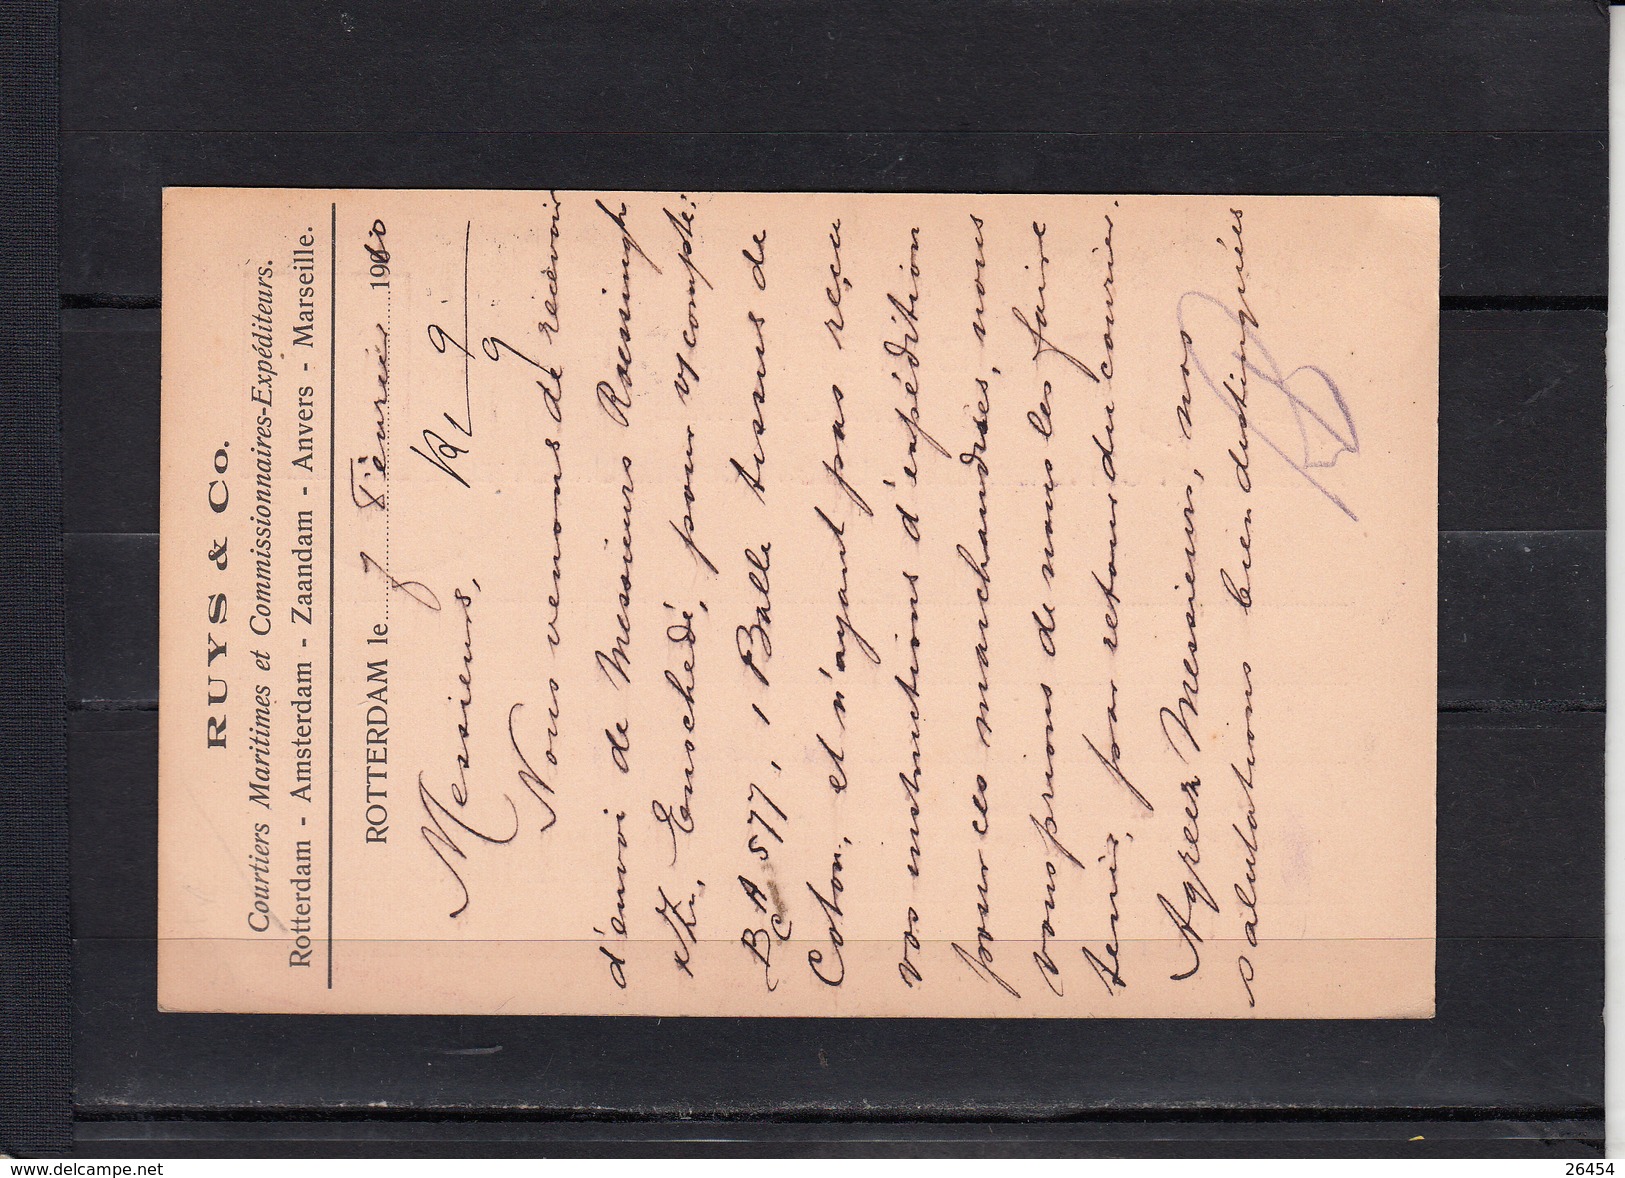 RUYS & Co.
Courtiers Maritimes et Commissionnaires-Expéditeurs.
Rotterdam - Amsterdam - Zaandam - Anvers - Marseille.
ROTTERDAM le 7 Fèvrier 1910
Messieurs,
9
9
Nous venons de recevoir
d'envoi de Messieurs
Enschedé, pour v/ compte:
B A 577, 1 Balle tissus de
C
Coton, et n'ayant pas reçu
vos instructions d'expédition
pour ces marchandises, nous
vous prions de nous les faire
tenir, par retour du courrier.
Agreez Messieurs, nos
salutations bien distinguées
www.delcampe.net
26454